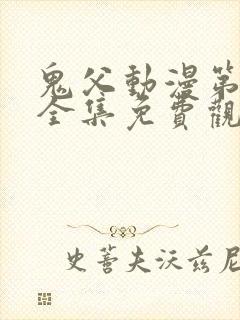 鬼父動漫第
全集免費觀
史蒈夫沃兹尼